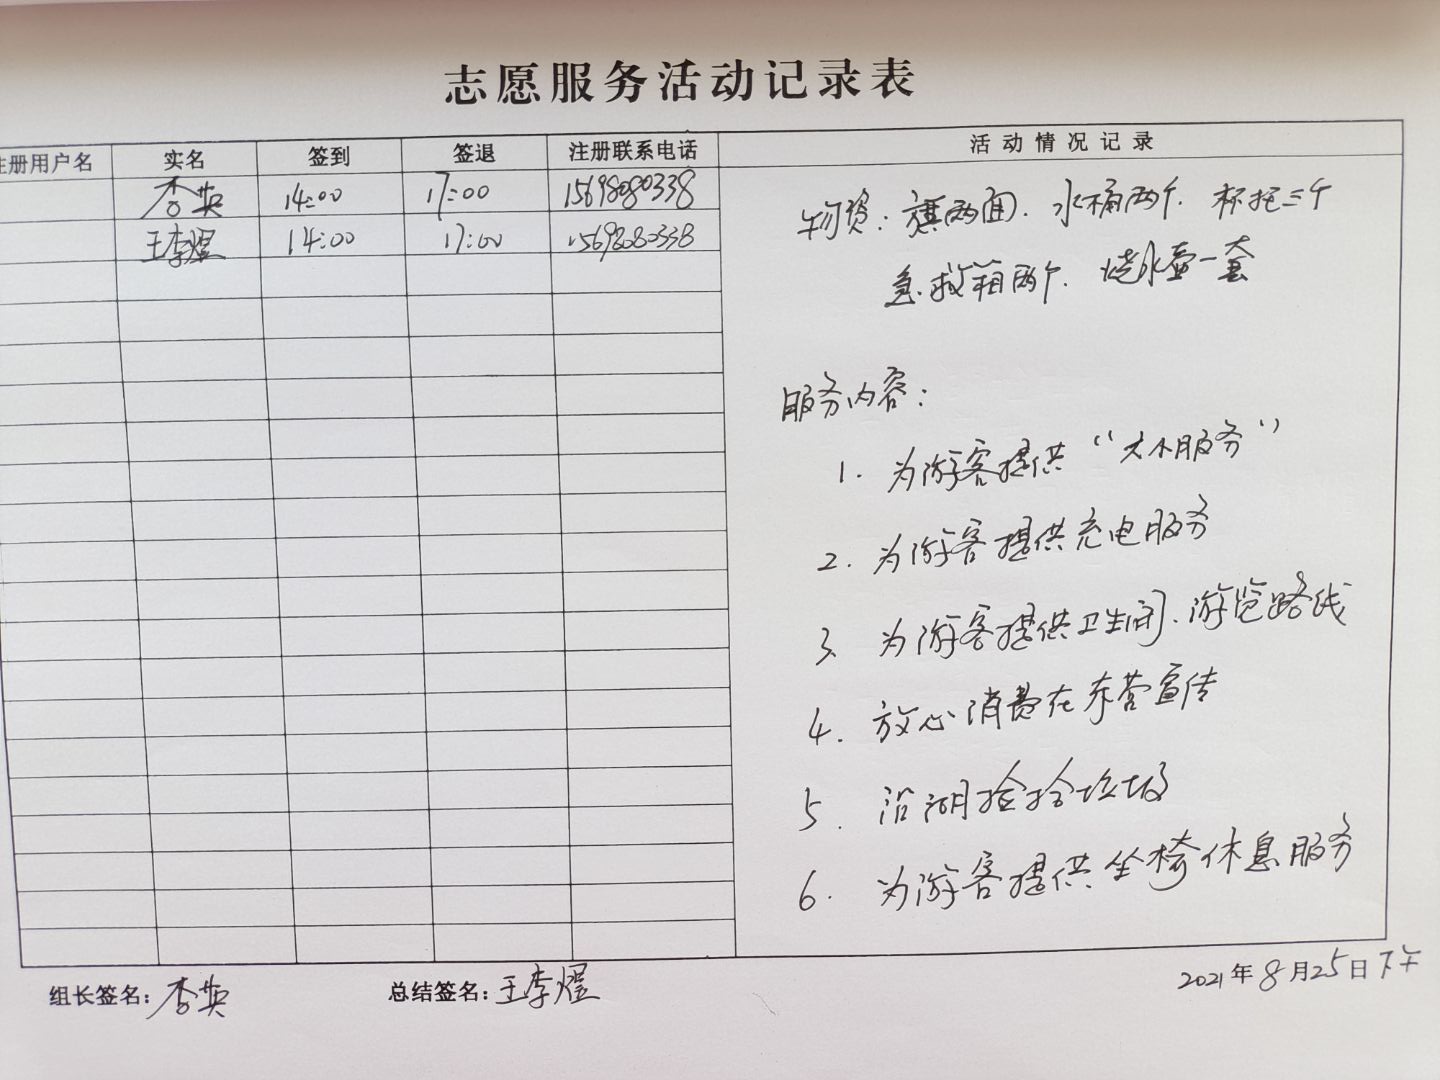 志愿服务活动记录表
注册用户名 实名 签到 签退 注册联系电话 活动情况记录
李英 14:00 17:00 15698080338
王李煜 14:00 17:00 15698080338
物资：旗两面、水桶两个、杯托三个
急救箱两个、烧水壶一套
服务内容：
1. 为游客提供“大小服务”
2. 为游客提供充电服务
3、为游客提供卫生间、游览路线
4. 放心消费在东营宣传
5. 沿湖捡拾垃圾
6. 为游客提供坐椅休息服务
组长签名：李英 总结签名：王李煜 2021年8月25日下午